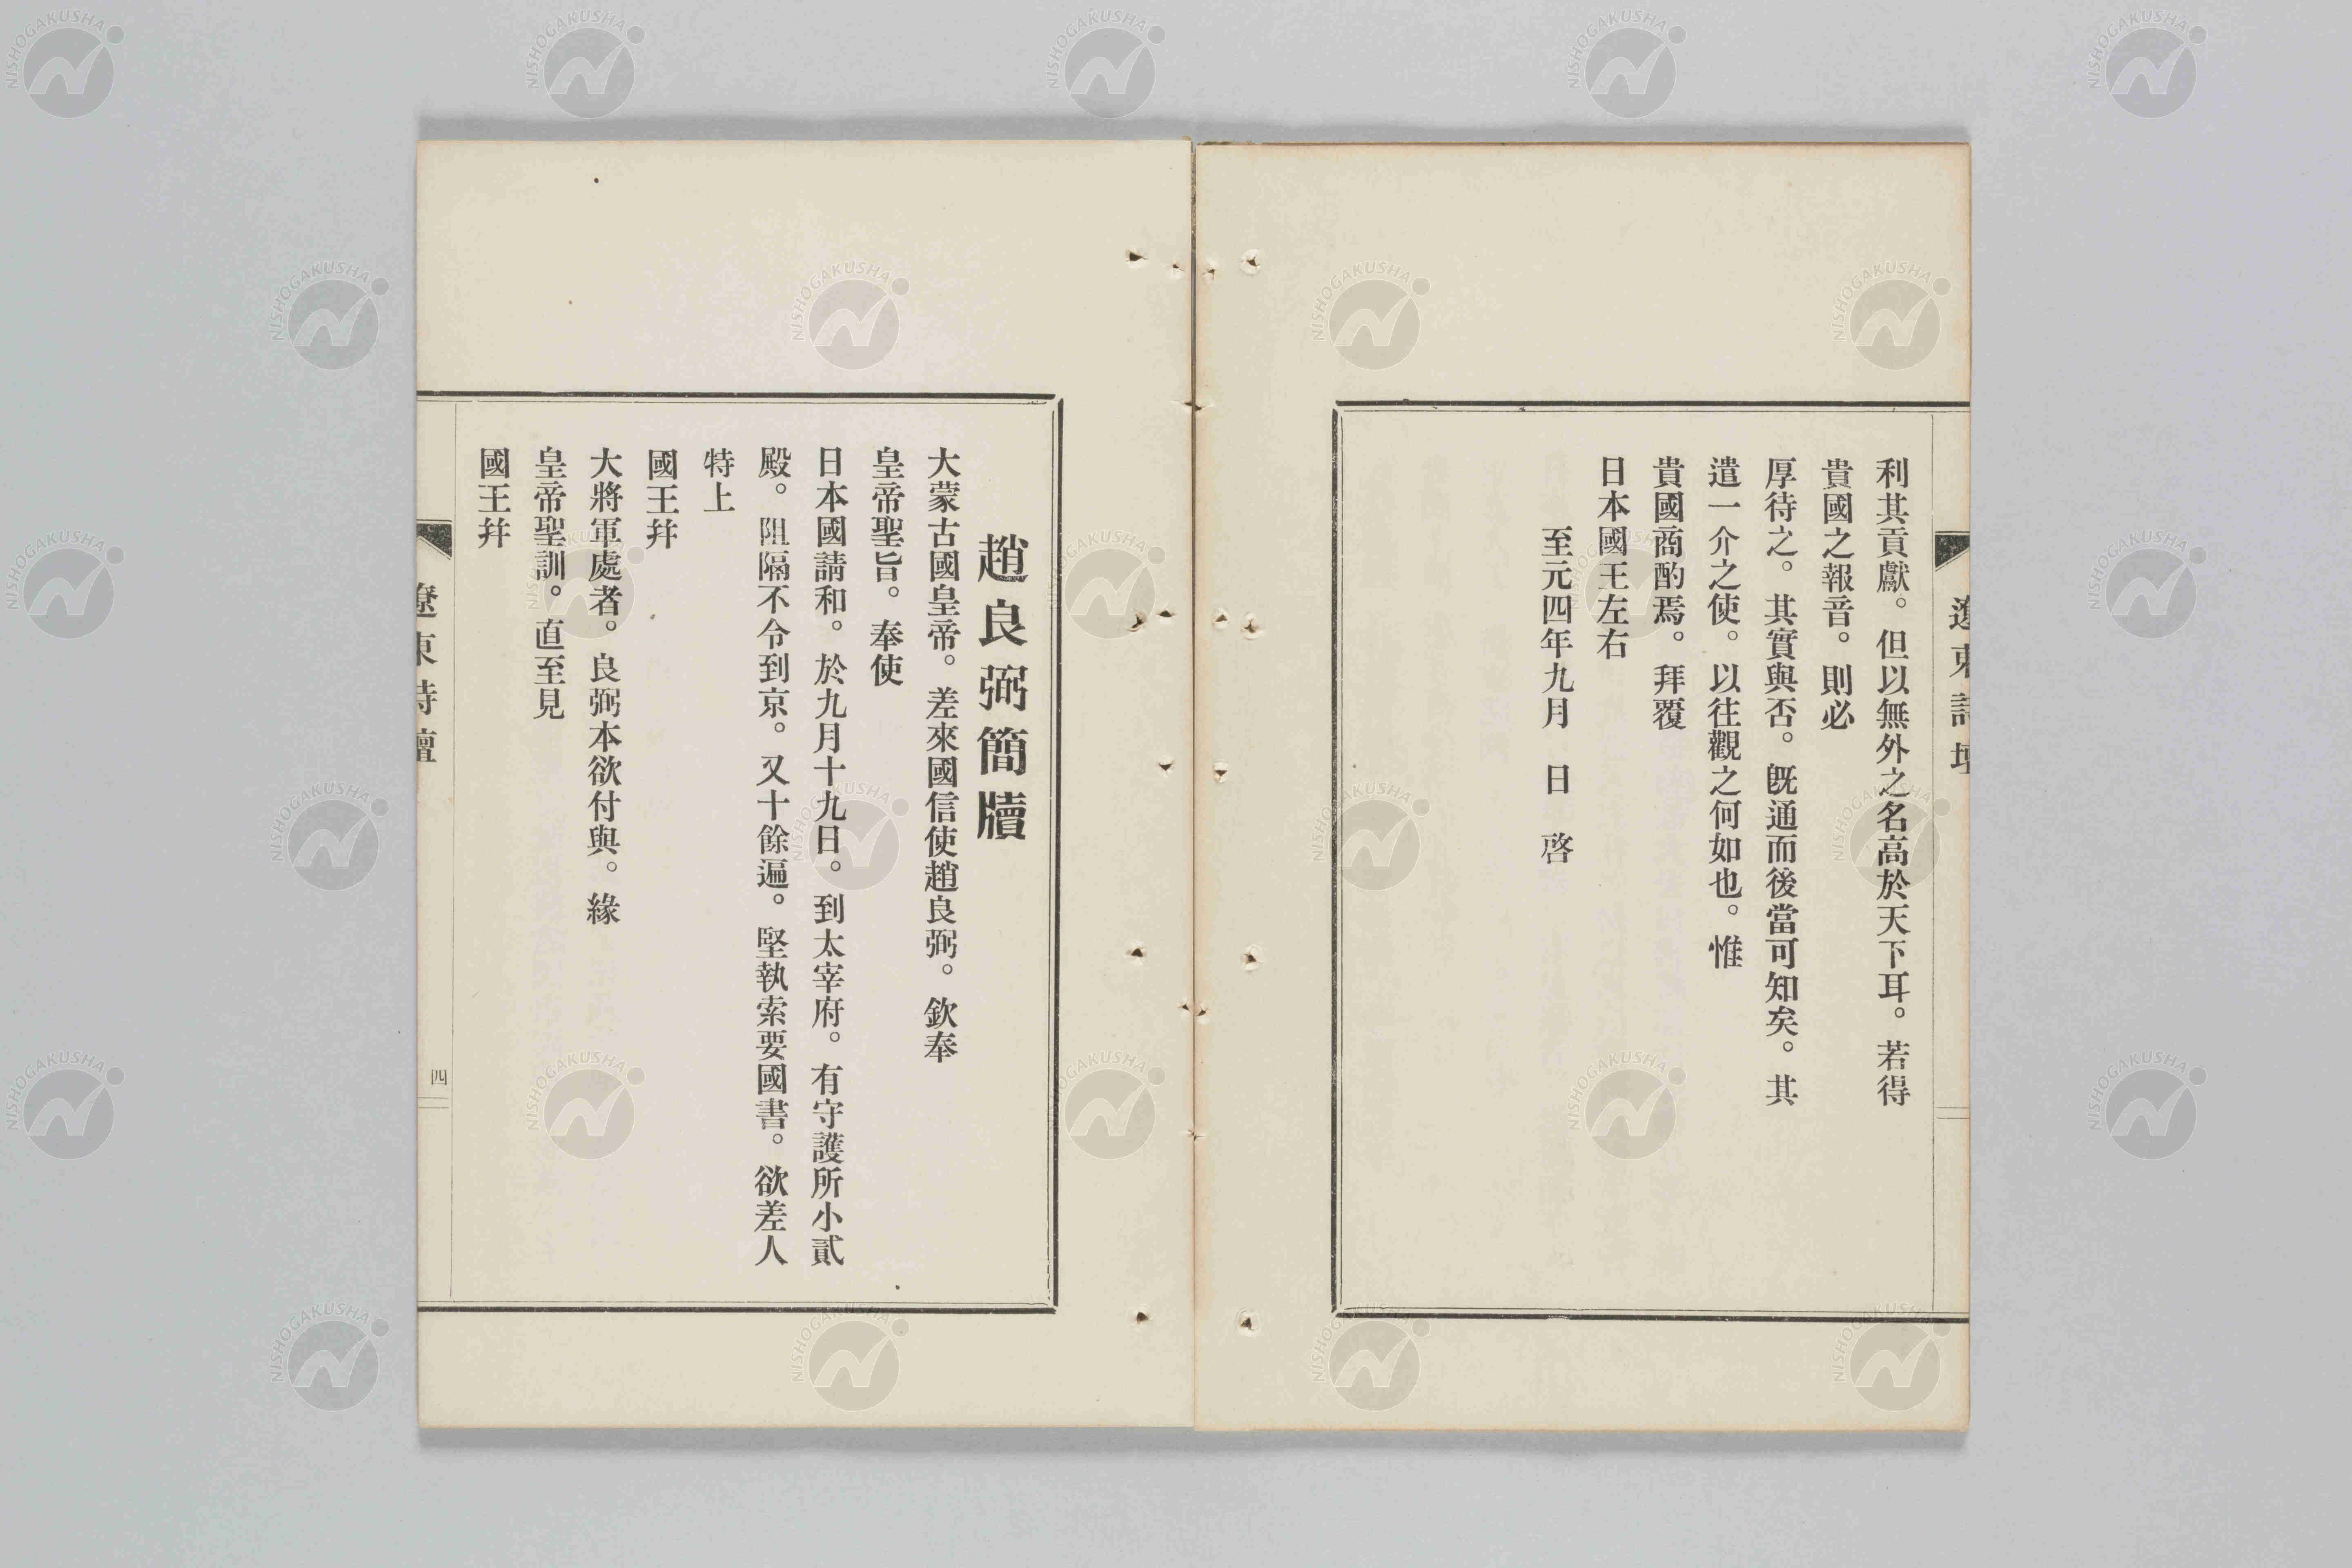 利其貢獻。但以無外之名高於天下耳。若得
貴國之報音。則必
厚待之。其實與否。既通而後當可知矣。其
遣一介之使。以往觀之何如也。惟
貴國商酌焉。拜覆
日本國王左右
至元四年九月　日　啓
趙良弼簡牘
大蒙古國皇帝。差來國信使趙良弼。欽奉
皇帝聖旨。奉使
日本國請和。於九月十九日。到太宰府。有守護所小貳
殿。阻隔不令到京。又十餘遍。堅執索要國書。欲差人
特上
國王幷
大將軍處者。良弼本欲付與。緣
皇帝聖訓。直至見
國王幷
遼東詩壇
四
NISHOGAKUSHA